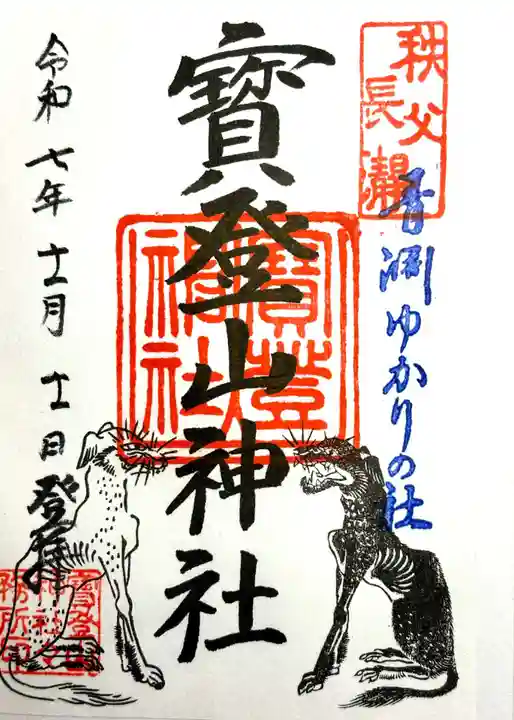 秩父
長瀞
青渕ゆかりの社
寳登山神社
寶登山神社
令和七年十一月十一日登拝
寶登山
神社社
務所印